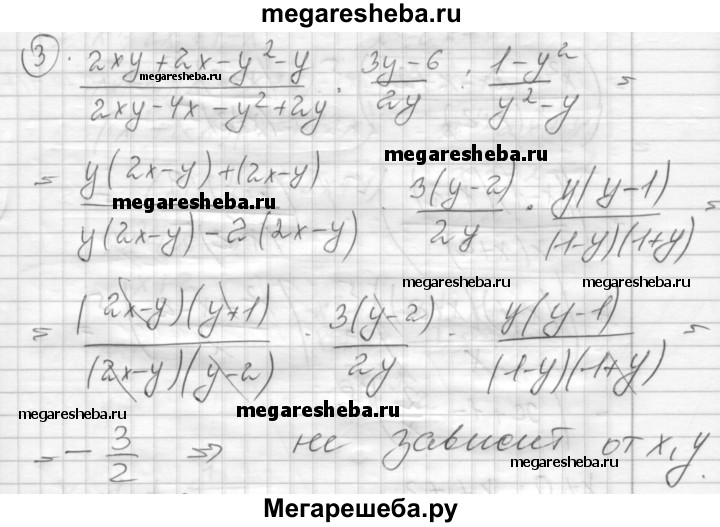 megaresheba.ru
3. (2xy+2x-y²-y)/(2xy-4x-y²+2y) · (3y-6)/(2y) : (1-y²)/(y²-y) =
megaresheba.ru
megaresheba.ru
= (y(2x-y)+(2x-y))/(y(2x-y)-2(2x-y)) · 3(y-2)/(2y) · y(y-1)/((1-y)(1+y)) =
megaresheba.ru
megaresheba.ru megaresheba.ru
= ((2x-y)(y+1))/((2x-y)(y-2)) · 3(y-2)/(2y) · y(y-1)/((1-y)(1+y)) =
megaresheba.ru megaresheba.ru
= -3/2 ⇒ не зависит от x, y.
megaresheba.ru
Мегарешеба.ру